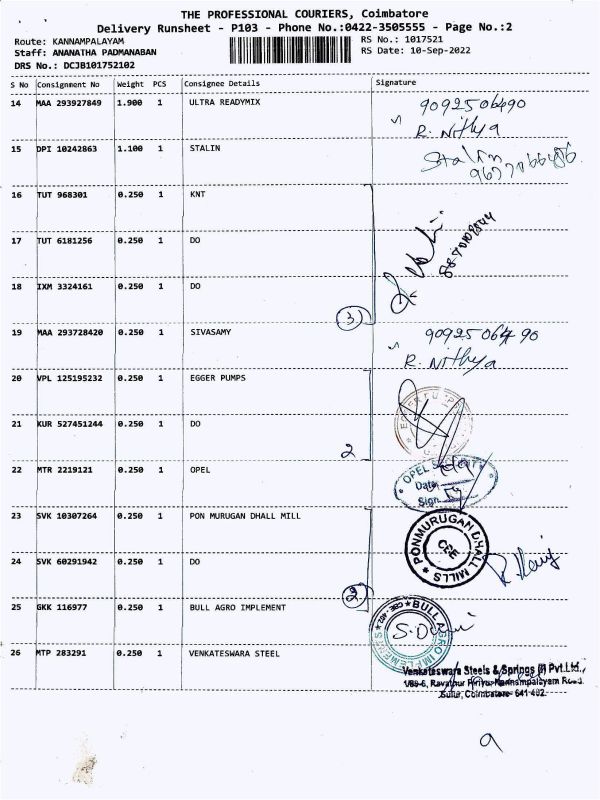 THE PROFESSIONAL COURIERS, Coimbatore
Delivery Runsheet - P103 - Phone No.:0422-3505555 - Page No.:2
Route: KANNAMPALAYAM
RS No.: 1017521
Staff: ANANATHA PADMANABAN
RS Date: 10-Sep-2022
DRS No.: DCJB101752102
S No Consignment No Weight PCS Consignee Details Signature
14 MAA 293927849 1.900 1 ULTRA READYMIX
9092506490
R. Nithya
15 DPI 10242863 1.100 1 STALIN
Stalin
16 TUT 968301 0.250 1 KNT
17 TUT 6181256 0.250 1 DO
18 IXM 3324161 0.250 1 DO
3
19 MAA 293728420 0.250 1 SIVASAMY
9092506490
R. Nithya
20 VPL 125195232 0.250 1 EGGER PUMPS
21 KUR 527451244 0.250 1 DO
2
22 MTR 2219121 0.250 1 OPEL
OPEL
Date
Sign
23 SVK 10307264 0.250 1 PON MURUGAN DHALL MILL
PONMURUGAN DHALL MILLS
CBE
24 SVK 60291942 0.250 1 DO
2
25 GKK 116977 0.250 1 BULL AGRO IMPLEMENT
BULL AGRO IMPLEMENTS
CBE-402
26 MTP 283291 0.250 1 VENKATESWARA STEEL
Venkateswara Steels & Springs (I) Pvt.Ltd.,
Sulur, Coimbatore- 641 402.
9